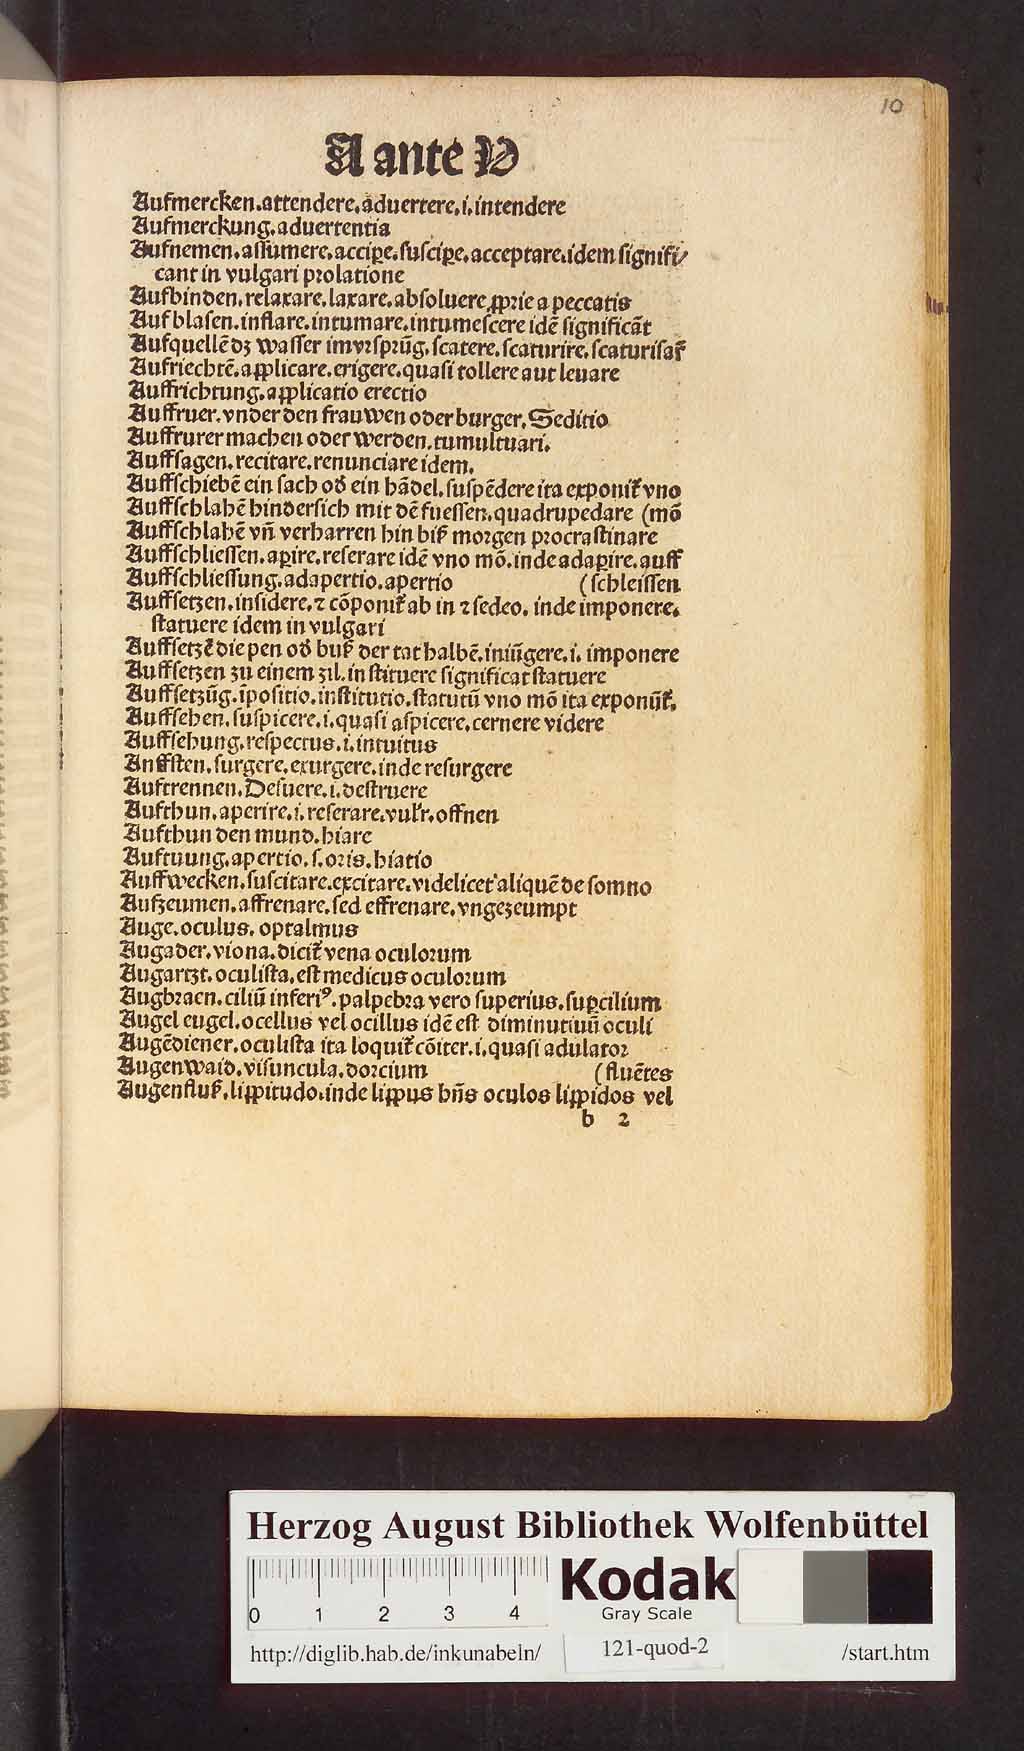 10
A ante V
Aufmercken.attendere.aduertere.i.intendere
Aufmerckung.aduertentia
Aufnemen.assumere.accipe̱.suscipe̱.acceptare.idem signifi⸗
cant in vulgari prolatione
Aufbinden.relaxare.laxare.absoluere ꝓprie a peccatis
Auf blasen.inflare.intumare.intumescere idē significāt
Aufquellē dz wasser im vrsprūg.scatere.scaturire.scaturisar᷑
Aufriechtē.applicare.erigere.quasi tollere aut leuare
Auffrichtung.applicatio erectio
Auffruer.vnder den frauwen oder burger.Seditio
Auffrurer machen oder werden.tumultuari.
Auffsagen.recitare.renunciare idem.
Auffschiebē ein sach od̕ ein hādel.suspēdere ita exponit᷑ vno
Auffschlahē hindersich mit dē fuessen.quadrupedare (mō
Auffschlahē vn̄ verharren hin biß morgen procrastinare
Auffschliessen.apire.reserare idē vno mō.inde adapire.auff
Auffschliessung.adapertio.apertio (schleissen
Auffsetzen.insidere.⁊ cōponit᷑ ab in ⁊ sedeo. inde imponere.
statuere idem in vulgari
Auffsetzē die pen od̕ buß der tat halbē.iniūgere.i. imponere
Auffsetzen zu einem zil.instituere significat statuere
Auffsetzūg.īpositio.institutio.statutū vno mō ita exponūt᷑.
Auffsehen.suspicere.i.quasi aspicere.cernere videre
Auffsehung.respectus.i.intuitus
Anffsten.surgere.exurgere.inde resurgere
Auftrennen.Desuere.i.destruere
Aufthun.aperire.i.reserare.vulr.offnen
Aufthun den mund.hiare
Auftuung.apertio.s.oris.hiatio
Auffwecken.suscitare.excitare.videlicet aliquē de somno
Aufzeumen.affrenare.sed effrenare.vngezeumpt
Auge.oculus. optalmus
Augader.viona.dicit᷑ vena oculorum
Augartzt.oculista.est medicus oculorum
Augbraen.ciliū inferiꝰ.palpebra vero superius.supcilium
Augel eugel.ocellus vel ocillus idē est diminutiuū oculi
Augēdiener.oculista ita loquit᷑ cōiter.i.quasi adulator
Augenwaid.visuncula.dorcium (fluētes
Augenfluß.lippitudo.inde lippus hn̄s oculos lippidos vel
b 2
Herzog August Bibliothek Wolfenbüttel
0 1 2 3 4
Kodak
Gray Scale
http://diglib.hab.de/inkunabeln/
121-quod-2
/start.htm